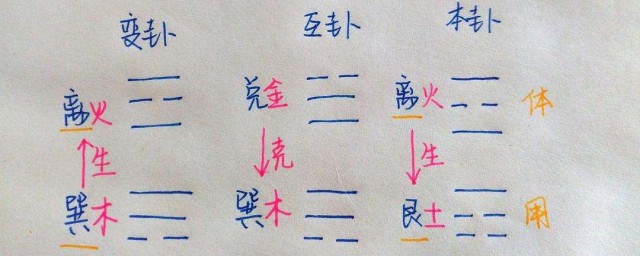 变卦 互卦 本卦
离火 兑金 离火 体
生 克 生
巽木 巽木 艮土 用